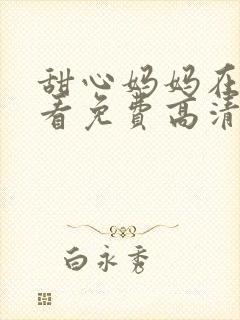 甜心妈妈在
看免费高清
白永秀